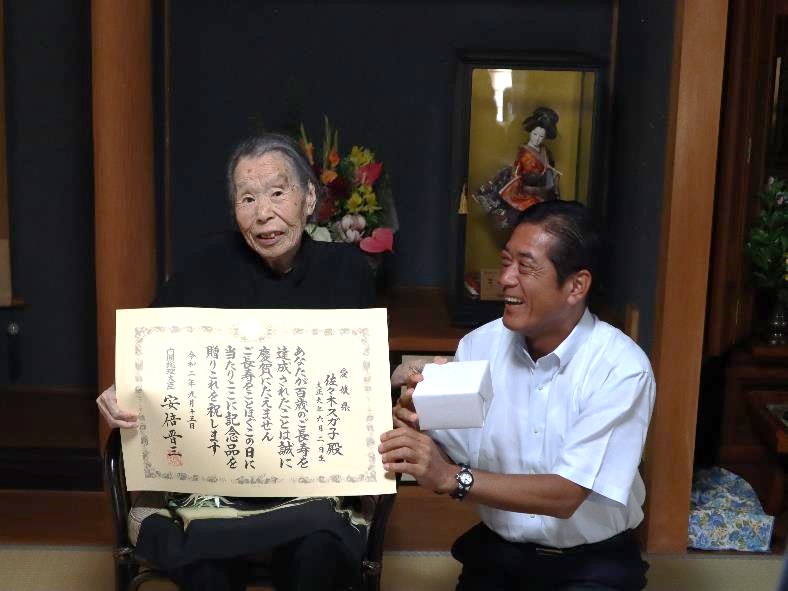 愛媛県
佐々木スガ子殿
大正九年六月二日生
あなたが百歳のご長寿を
達成されたことは誠に
慶賀にたえません
ご長寿をことほぎこの日に
当たりここに記念品を
贈りこれを祝します
令和二年九月十五日
内閣総理大臣
安倍晋三